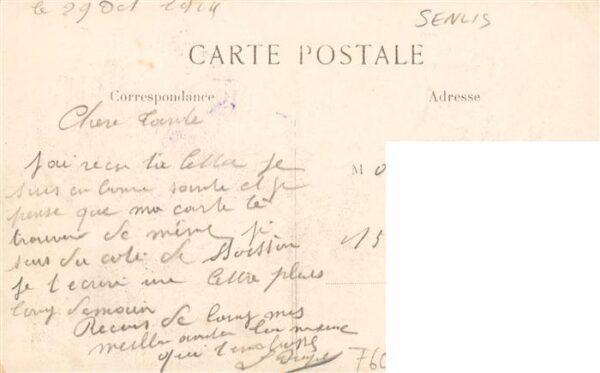 le 29 Oct 1914
SENLIS
CARTE POSTALE
Correspondance
Adresse
Chere tante
J'ai reçu ta lettre je
suis en bonne sante et je
pense que ma carte te
trouvera de même je
suis du coté de Soisson
je t'ecrirai une lettre plus
long demain
Recois de
meilleur
qui t'embrasse
M
15
760